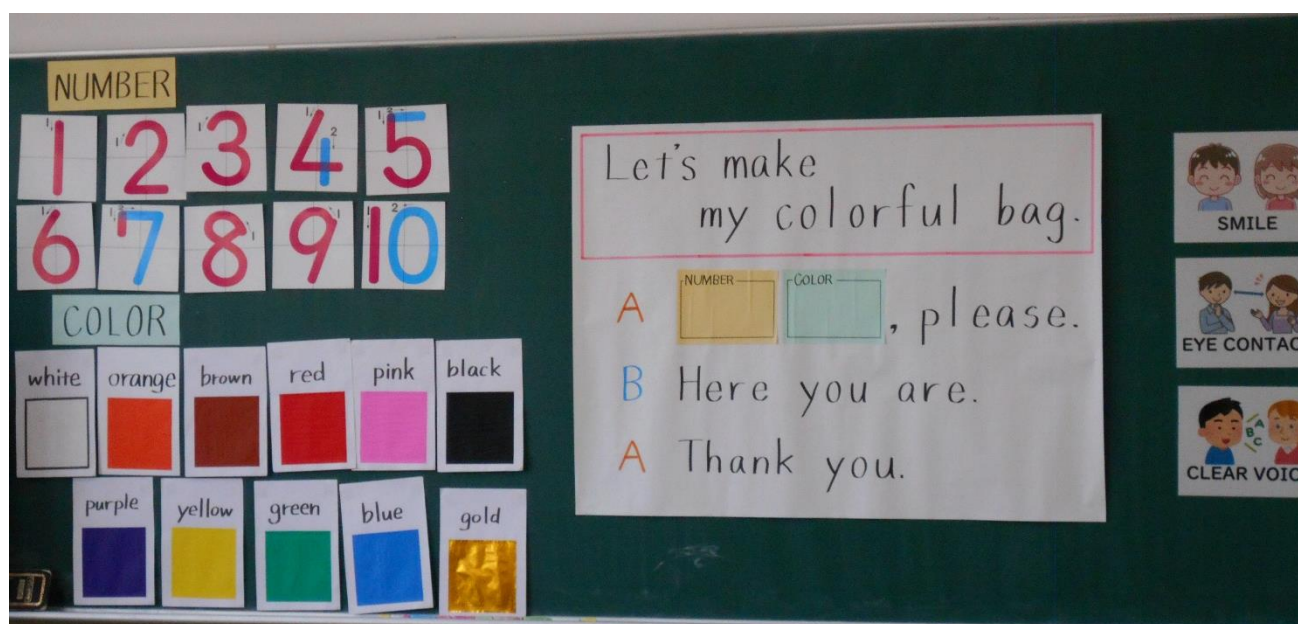 NUMBER
1 2 3 4 5
6 7 8 9 10
COLOR
white orange brown red pink black
purple yellow green blue gold
Let's make
my colorful bag.
A NUMBER COLOR , please.
B Here you are.
A Thank you.
SMILE
EYE CONTAC
A
B
C
CLEAR VOIC